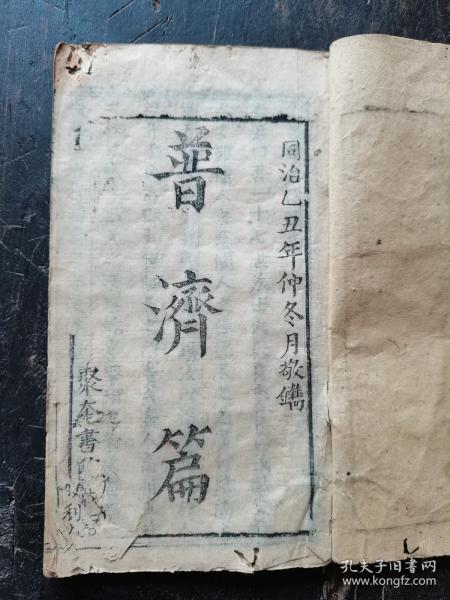 同治乙丑年仲冬月敬鐫
普濟篇
聚奎書
孔夫子旧书网
www.kongfz.com